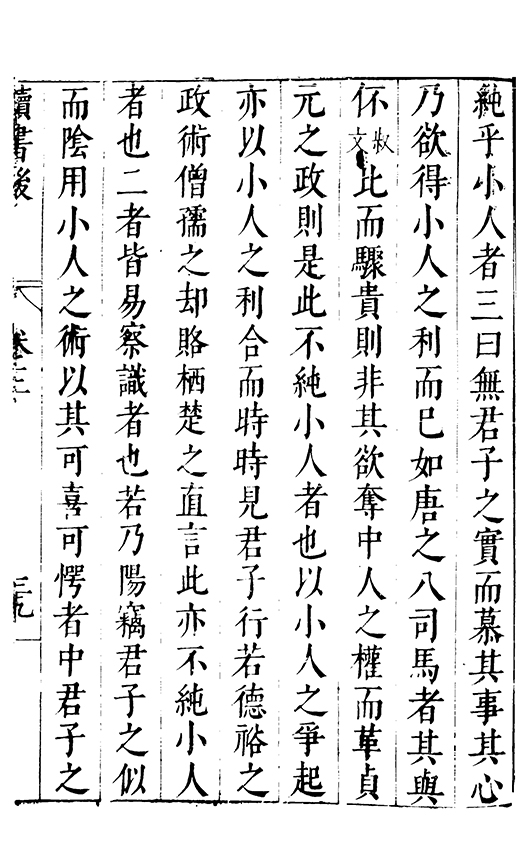 純乎小人者三曰無君子之實而慕其事其心
乃欲得小人之利而已如唐之八司馬者其與
伾叔文比而驟貴則非其欲奪中人之權而革貞
元之政則是此不純小人者也以小人之爭起
亦以小人之利合而時時見君子行若德裕之
政術僧孺之却賂栖楚之直言此亦不純小人
者也二者皆易察識者也若乃陽竊君子之似
而陰用小人之術以其可喜可愕者中君子之
讀書後
卷之三
三九